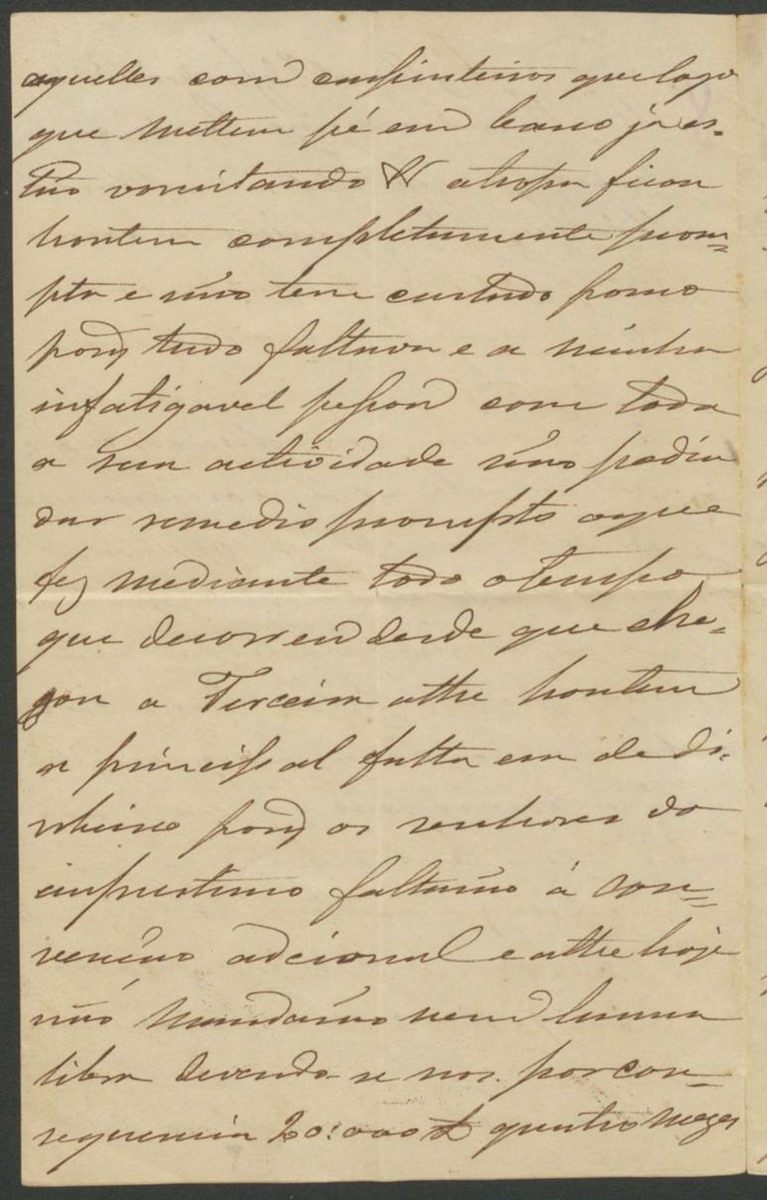 aquelles com carpinteiros que logo
que mettem pé em barco já es-
tão vomitando &c a tropa ficou
hontem completamente prom=
pta e não tem custado pouco
porq tudo faltava e a minha
infatigavel pessoa com toda
a sua actividade não podia
dar remedio prompto o que
fez mediante todo o tempo
que decorreu desde que che-
gou a Terceira athe hontem
a principal falta era de di-
nheiro porq os senhores do
imprestimo faltarão á con=
venção adcional e athe hoje
não mandarão nem huma
libra devendo-se nos por con-
sequencia 20:000 £ quatro mezes